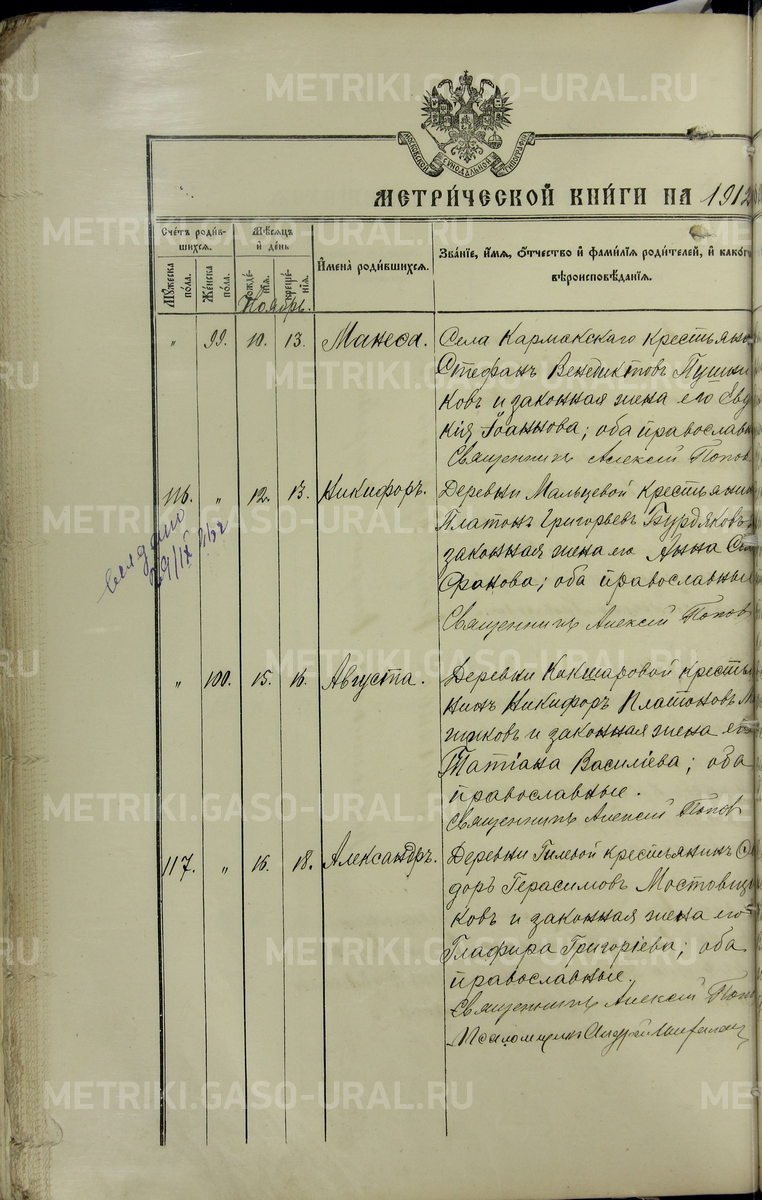 МОСКОВСКОЙ СѴНОДАЛЬНОЙ ТИПОГРАФІИ
МЕТРИ́ЧЕСКОЙ КНИ́ГИ НА 1912
Сче́тъ роди́в-
шихся.
Мꙋ́жеска
по́ла.
Же́нска
по́ла.
Мѣ́сяцъ
и҆ де́нь
рожде́-
нїя.
креще́-
нїя.
Ноябрь.
И҆мена̀ роди́вшихся.
Зва́нїе, и҆́мя, ѻ҆́тчество и҆ фами́лїя роди́телей, и҆ како́г
вѣроисповѣ́данїя.
" 99. 10. 13. Манеѳа. Села Кармакскаго крестьян
Стефанъ Венедиктовъ Пушни
ковъ и законная жена его Евд
кія Іоаннова; оба православн
Священникъ Алексій Попов
116. " 12. 13. Никифоръ. Деревни Мальцевой крестьянин
Платонъ Григорьевъ Бурдяковъ
законная жена его Анна
фанова; оба православные
Священникъ Алексій Попов
29/IX
" 100. 15. 16. Августа. Деревни Кокшаровой кресть
нинъ Никифоръ Платоновъ
шковъ и законная жена ег
Татіана Василіева; оба
православные.
Священникъ Алексій Попов
117. " 16. 18. Александръ. Деревни Гилевой крестьянинъ
доръ Герасимовъ Мостовщи
ковъ и законная жена его
Глафира Григоріева; оба
православные.
Священникъ Алексій Попо
Псаломщикъ Андрей
METRIKI.GASO-URAL.RU